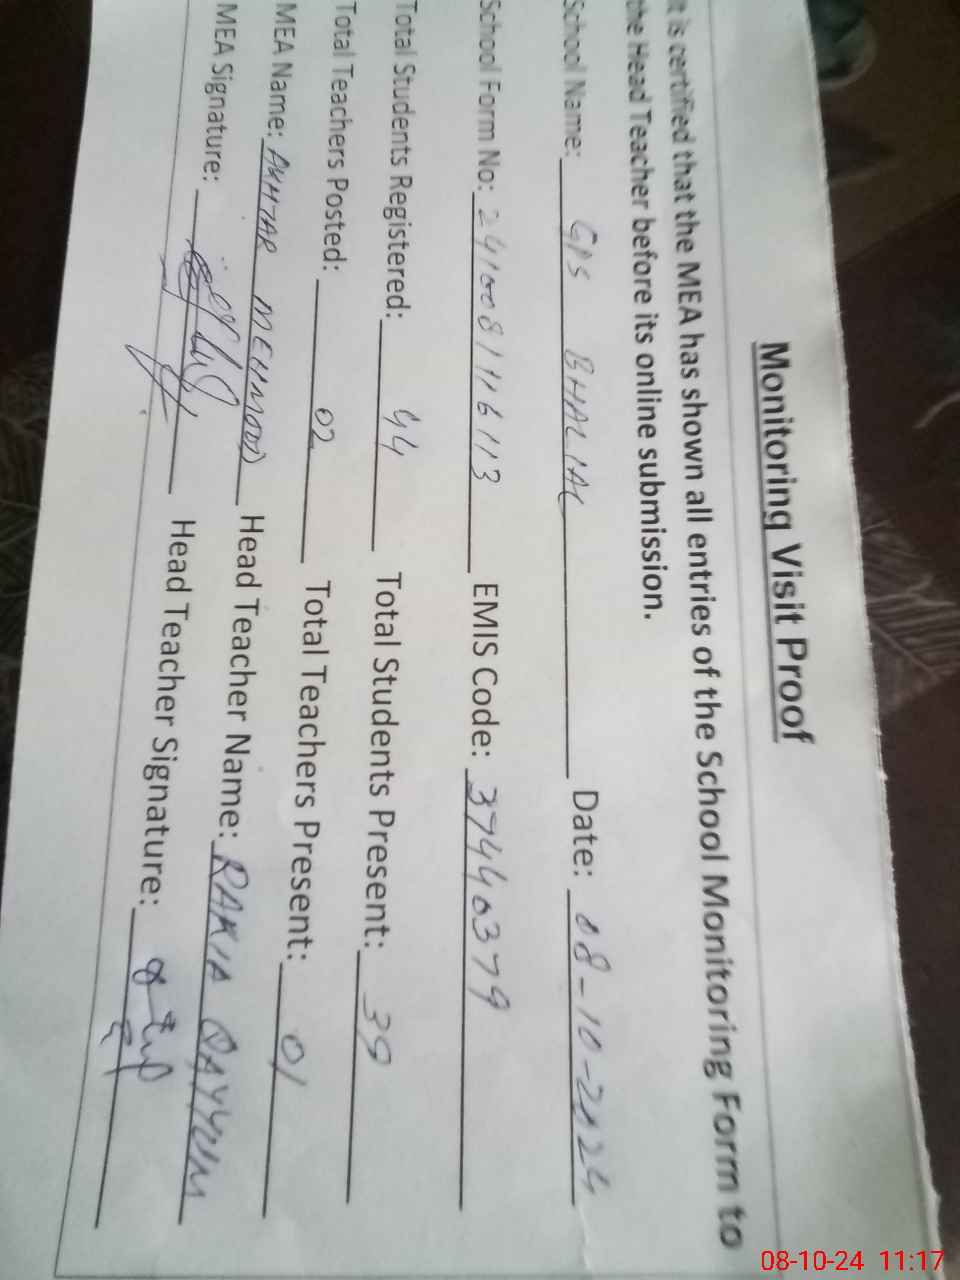 Monitoring Visit Proof
It is certified that the MEA has shown all entries of the School Monitoring Form to
the Head Teacher before its online submission.
School Name: GPS BHALIAL Date: 08-10-2024
School Form No: 2410081116113 EMIS Code: 37440379
Total Students Registered: 44 Total Students Present: 39
Total Teachers Posted: 02 Total Teachers Present: 01
MEA Name: AKHTAR MEHMOOD Head Teacher Name: RAKIA QAYYUM
MEA Signature: Head Teacher Signature:
08-10-24 11:17